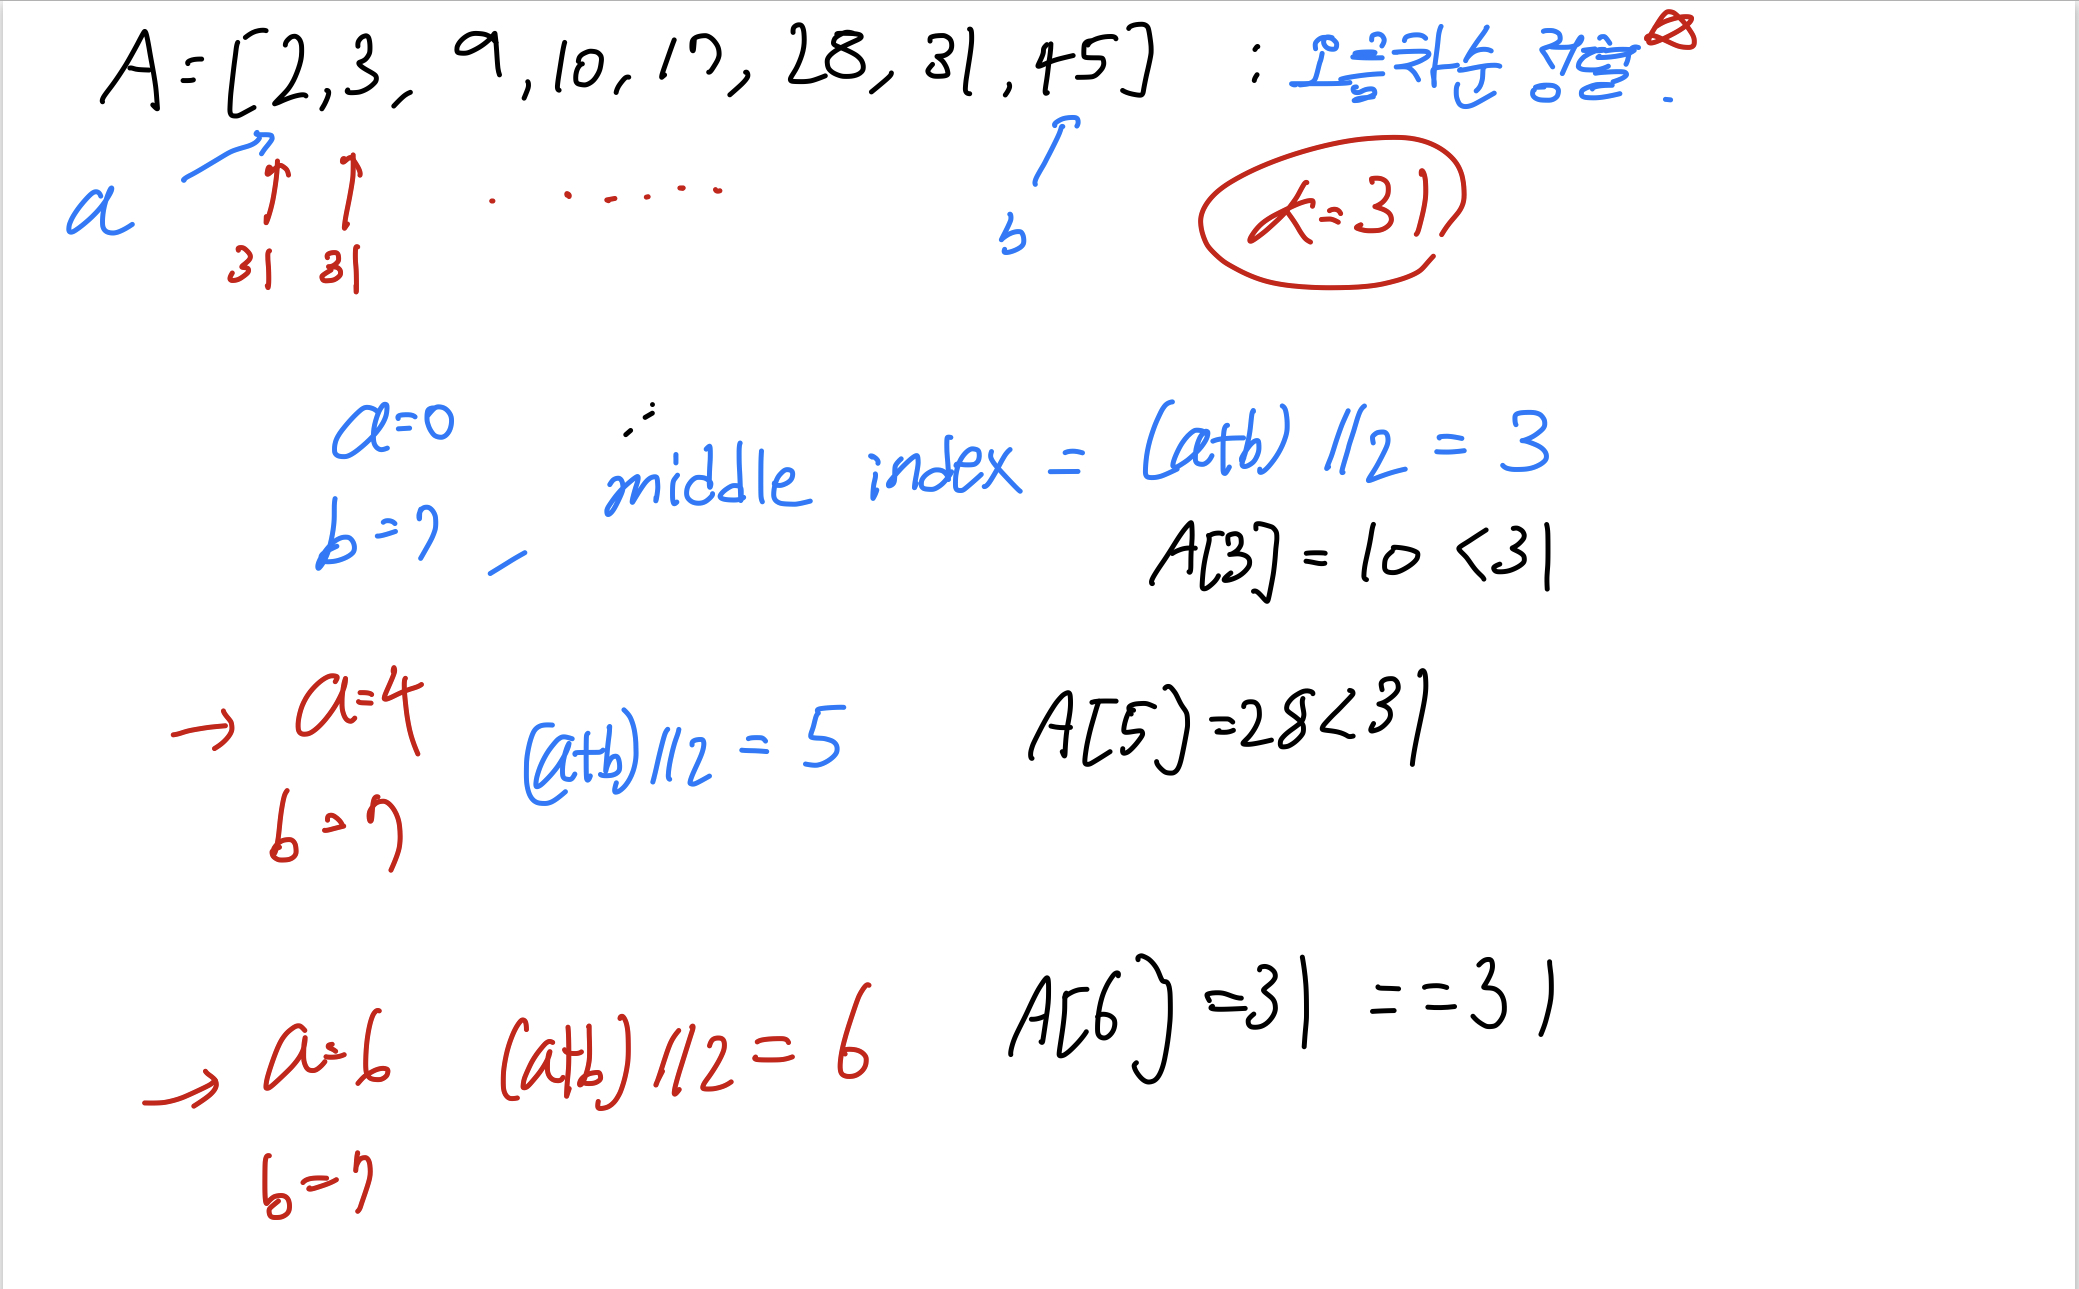 A=[2,3, 9,10, 17, 28, 31, 45] : 오름차순 정렬.
a
b
x=31
31 31
a=0
middle index = (a+b) //2 = 3
b=7
A[3] = 10 <31
→ a=4
(a+b)//2 = 5
A[5]=28<31
b=7
→ a=6 (a+b)//2 = 6
A[6] =31 ==31
b=7